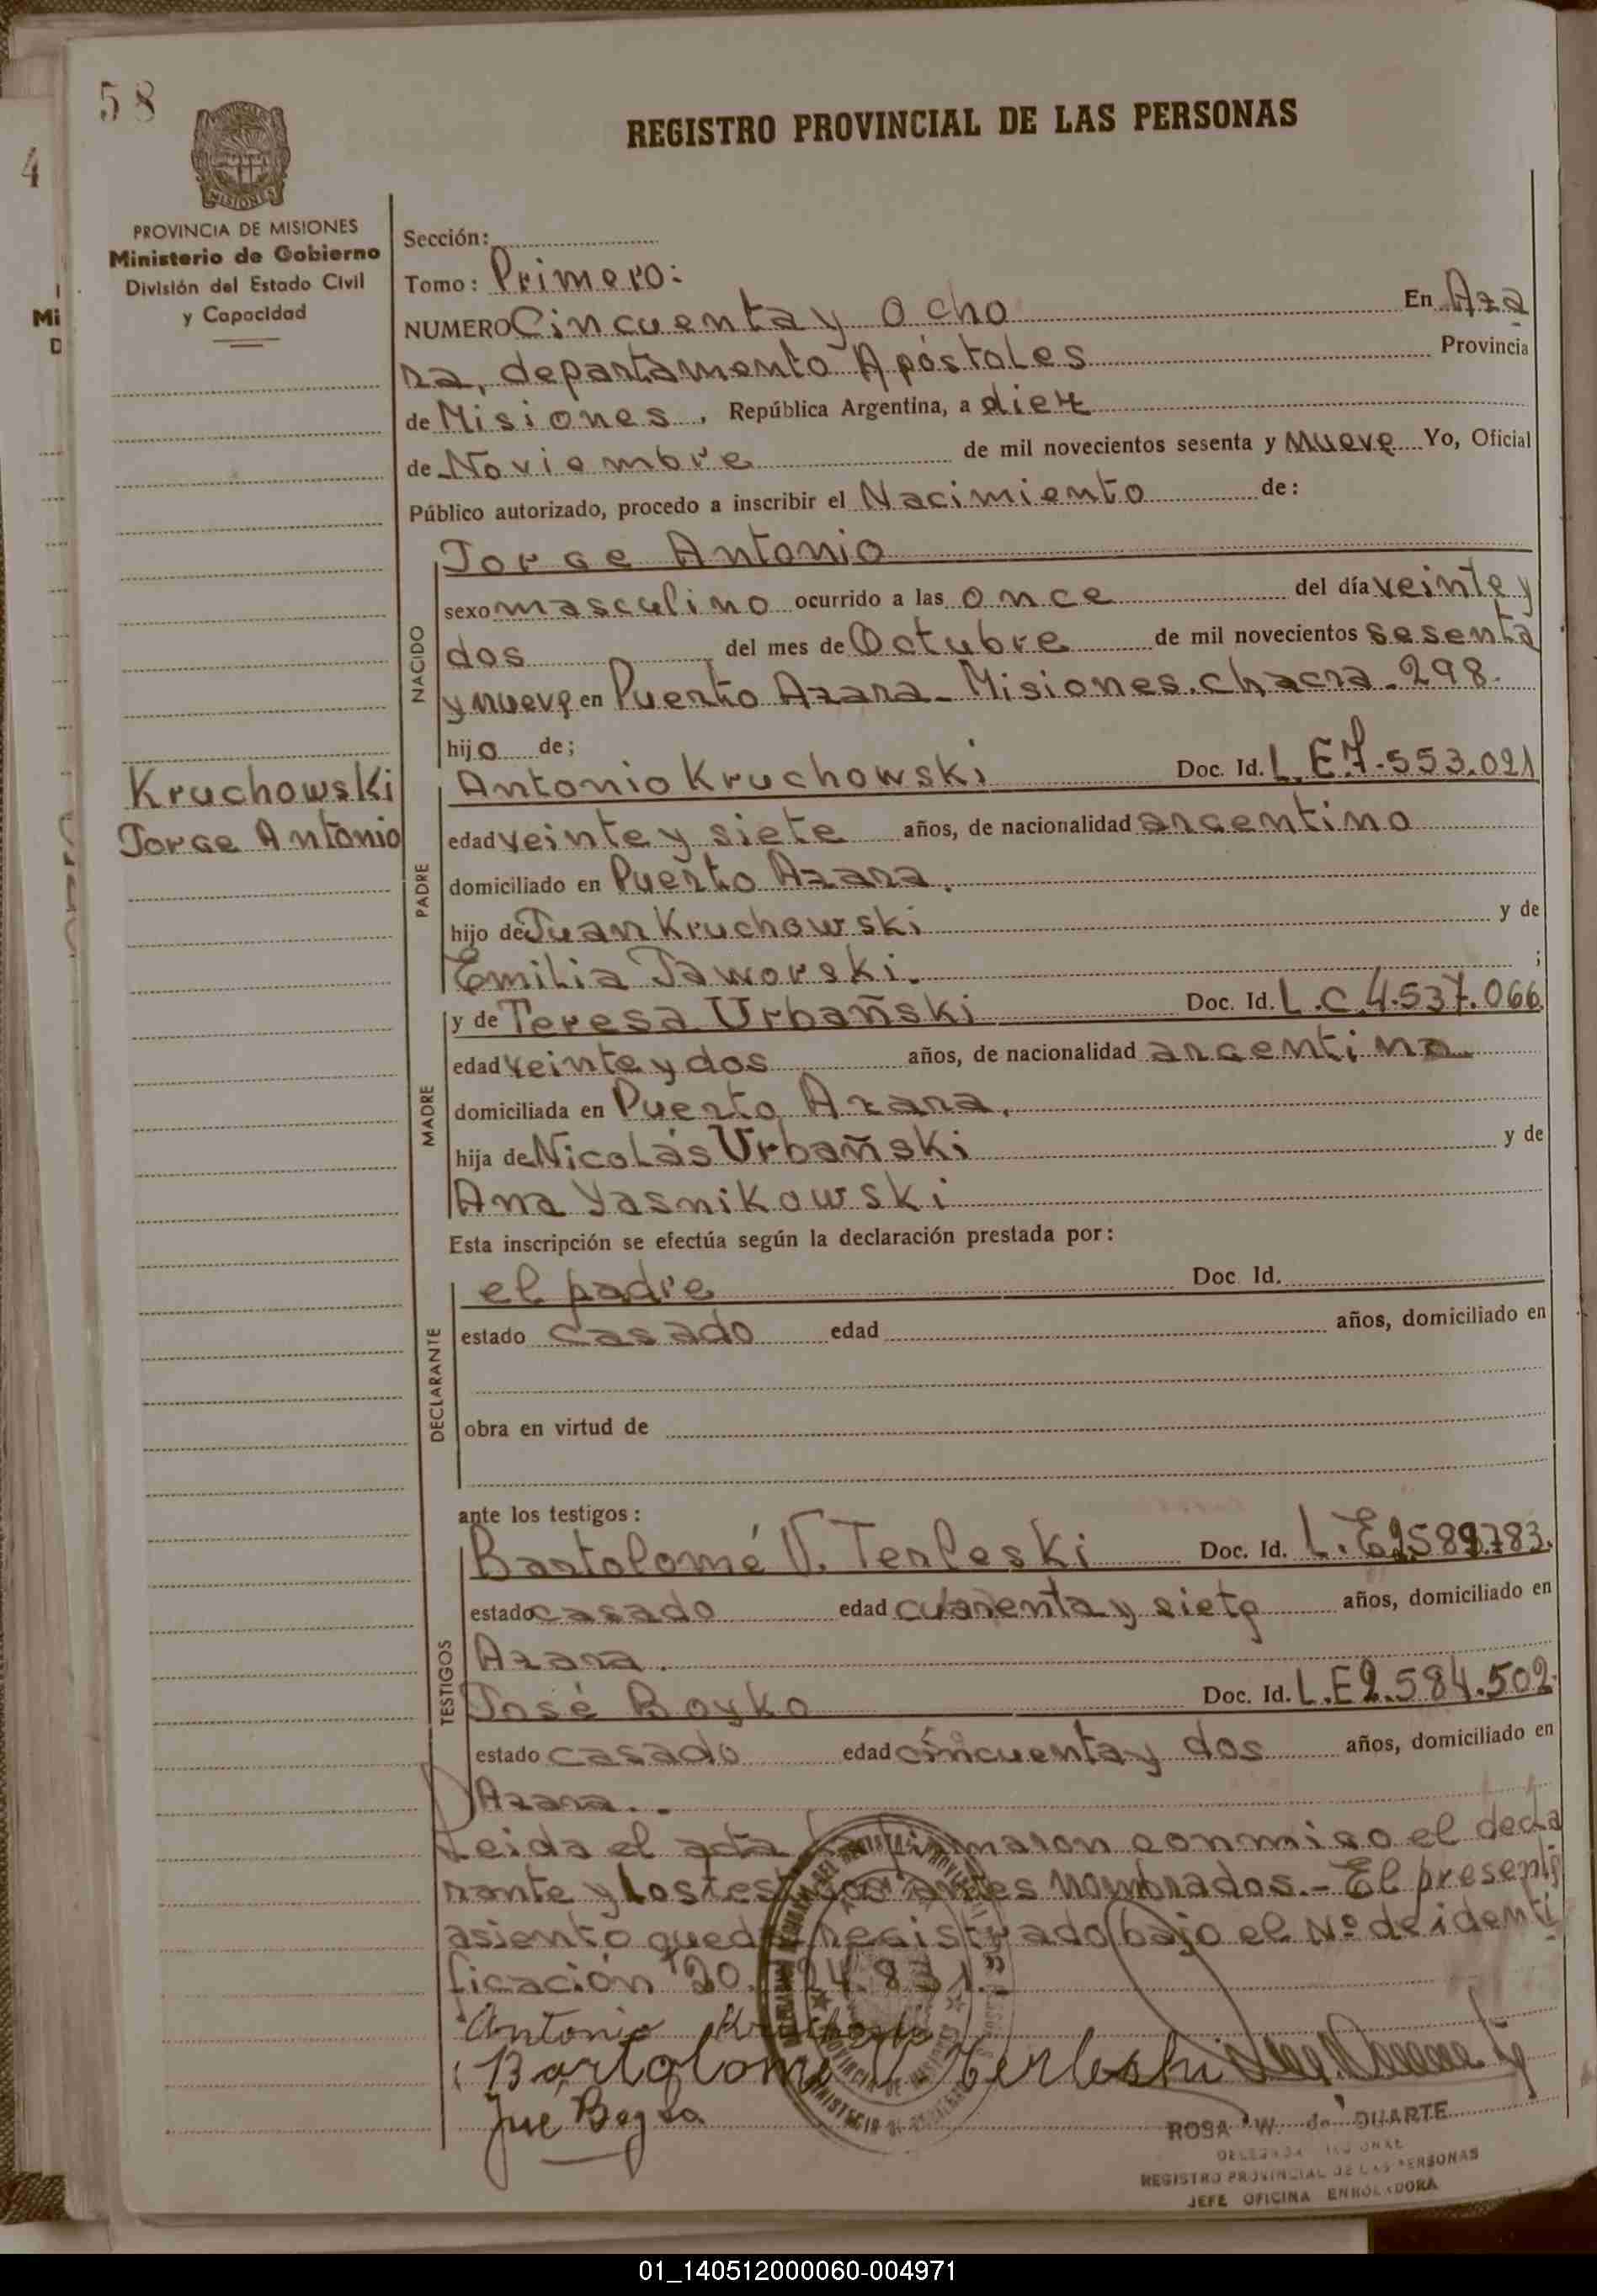 58
REGISTRO PROVINCIAL DE LAS PERSONAS
4
MISIONES
PROVINCIA DE MISIONES
Ministerio de Gobierno
División del Estado Civil
y Capacidad
Mi
D
Sección:
Tomo: Primero:
NUMERO Cincuenta y Ocho En Aza
ra, departamento Apóstoles Provincia
de Misiones, República Argentina, a diez
de Noviembre de mil novecientos sesenta y nueve Yo, Oficial
Público autorizado, procedo a inscribir el Nacimiento de:
NACIDO
Jorge Antonio
sexo masculino ocurrido a las once del día veinte y
dos del mes de Octubre de mil novecientos sesenta
y nueve en Puerto Azara - Misiones. chacra - 298.
hijo de;
Kruchowski
Jorge Antonio
PADRE
Antonio Kruchowski Doc. Id. L.E 7.553.021
edad veinte y siete años, de nacionalidad argentino
domiciliado en Puerto Azara.
hijo de Juan Kruchowski y de
Emilia Jaworski. ;
MADRE
y de Teresa Urbañski Doc. Id. L.C 4.537.066.
edad veinte y dos años, de nacionalidad argentina
domiciliada en Puerto Azara.
hija de Nicolás Urbañski y de
Ana Yasnikowski
Esta inscripción se efectúa según la declaración prestada por:
DECLARANTE
el padre Doc. Id.
estado casado edad años, domiciliado en
obra en virtud de
ante los testigos:
TESTIGOS
Bartolomé V. Terleski Doc. Id. L.E
estado casado edad cuarenta y siete años, domiciliado en
Azara.
José Boyko Doc. Id. L.E 2.584.502.
estado casado edad cincuenta y dos años, domiciliado en
Azara..
Leida el acta la firmaron conmigo el decla
rante y los testigos antes nombrados. - El presente
asiento queda registrado bajo el Nº de identi
ficación 20. 24.831.
Antonio Kruchowski
Bartolome V Terleski
José Boyko
ROSA W. de DUARTE
REGISTRO PROVINCIAL DE LAS PERSONAS
JEFE OFICINA ENROLADORA
01_140512000060-004971